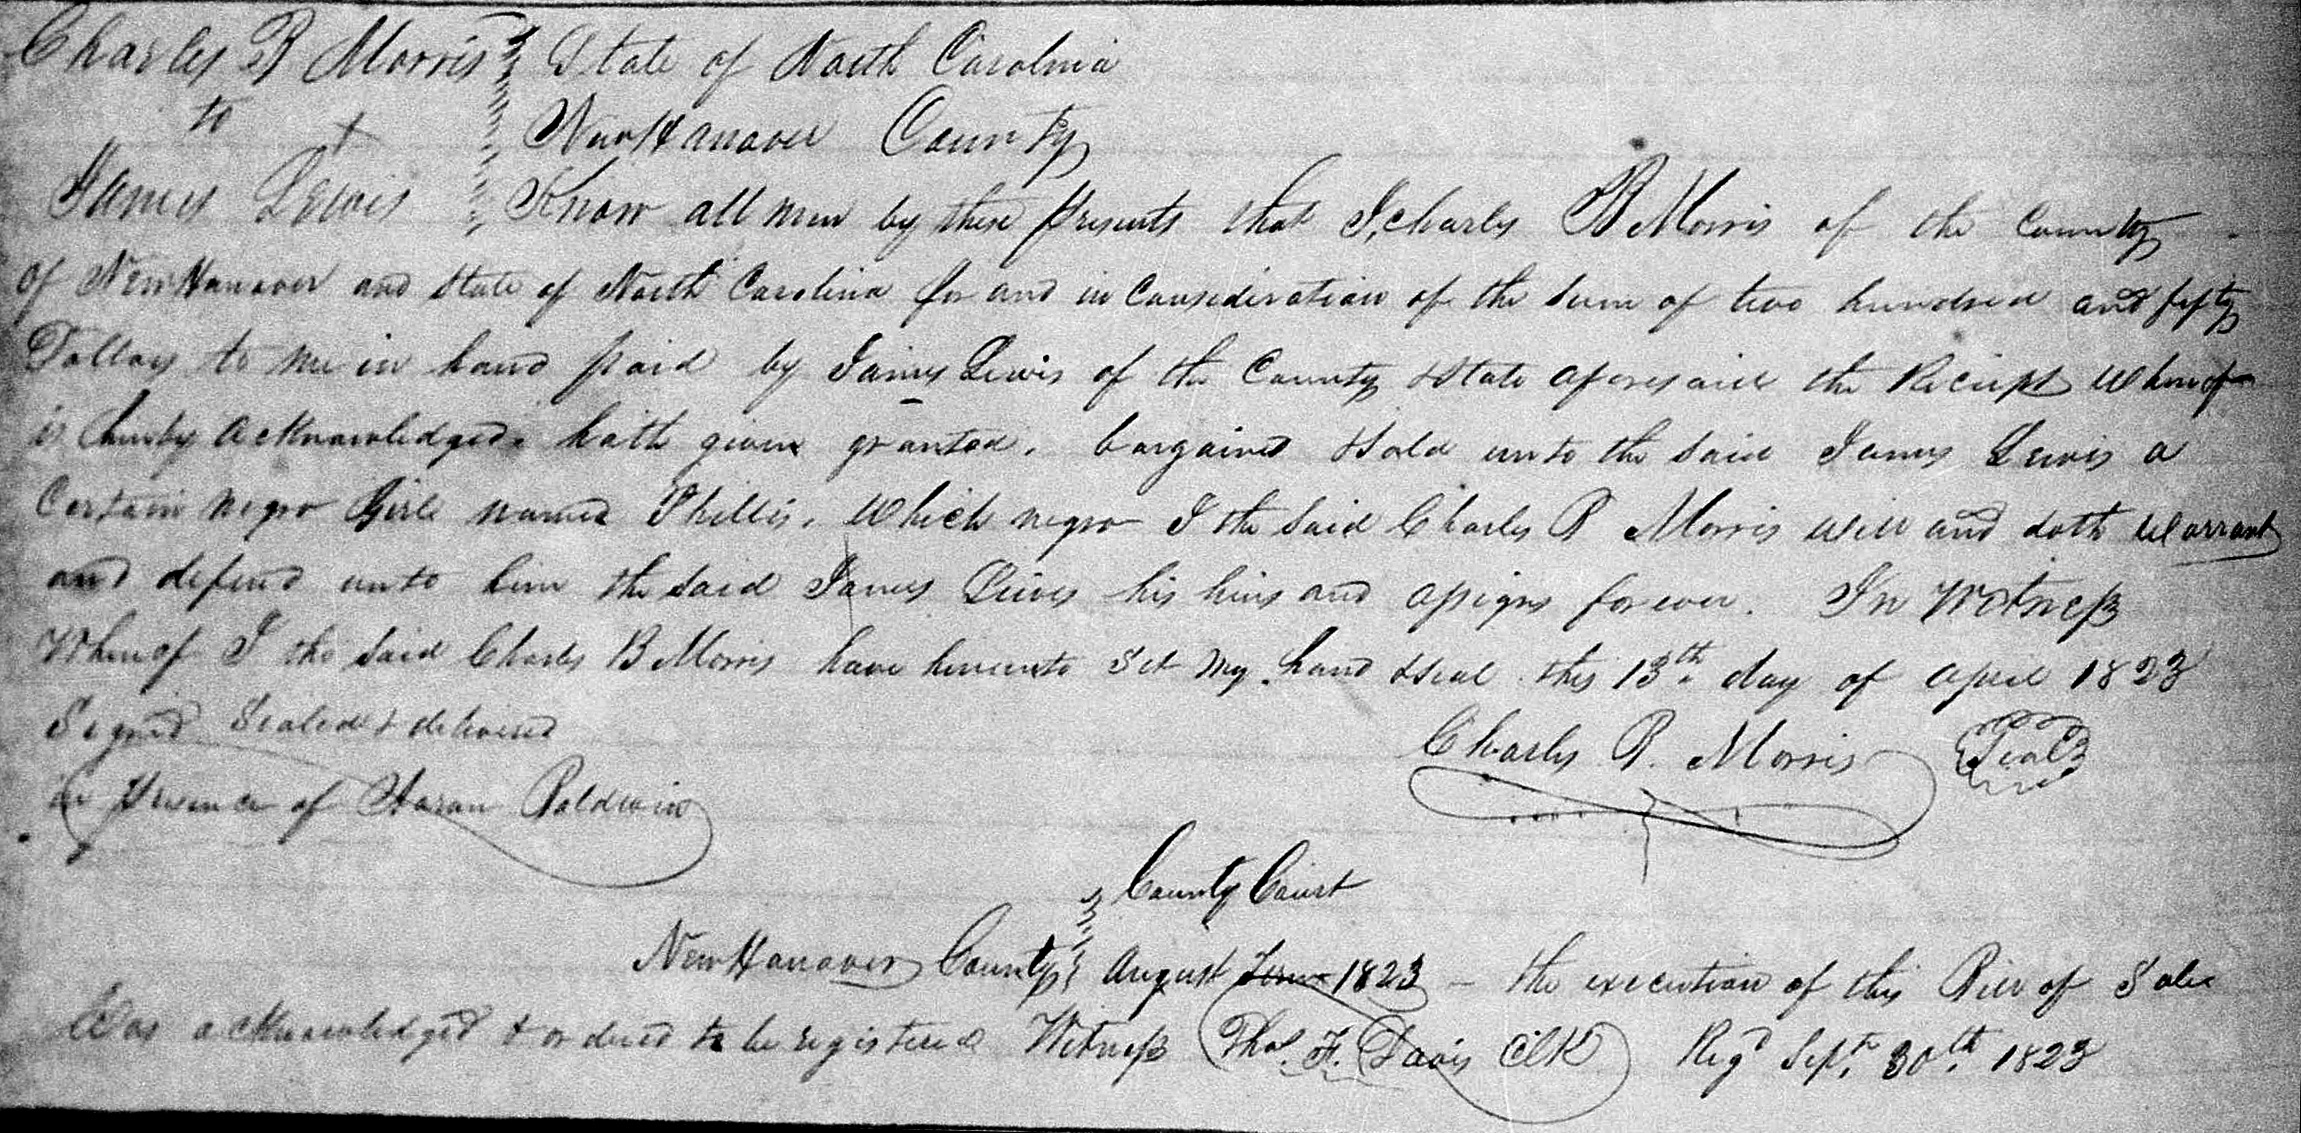 Charles B Morris State of North Carolina
to New Hanover County
James Lewis Know all men by these presents that I, Charles B Morris of the County
of New Hanover and State of North Carolina for and in Consideration of the Sum of two hundred and fifty
Dollars to me in hand paid by James Lewis of the County & State aforesaid the Receipt Whereof
is hereby acknowledged, hath given granted, bargained & Sold unto the said James Lewis a
Certain negro Girl named Phillis, which negro I the Said Charles B Morris will and doth Warrant
and defend unto him the Said James Lewis his heirs and assigns forever. In Witness
Whereof I the Said Charles B Morris have hereunto Set my hand & Seal this 13th day of April 1823
Signed Sealed & delivered
Charles B. Morris Seal
in Presence of Aaron Baldwin
County Court
New Hanover County August Term 1823 - the execution of this Bill of Sale
Was acknowledged & ordered to be registered Witness Thos. F. Davis Clk Regd Sept. 30th. 1823